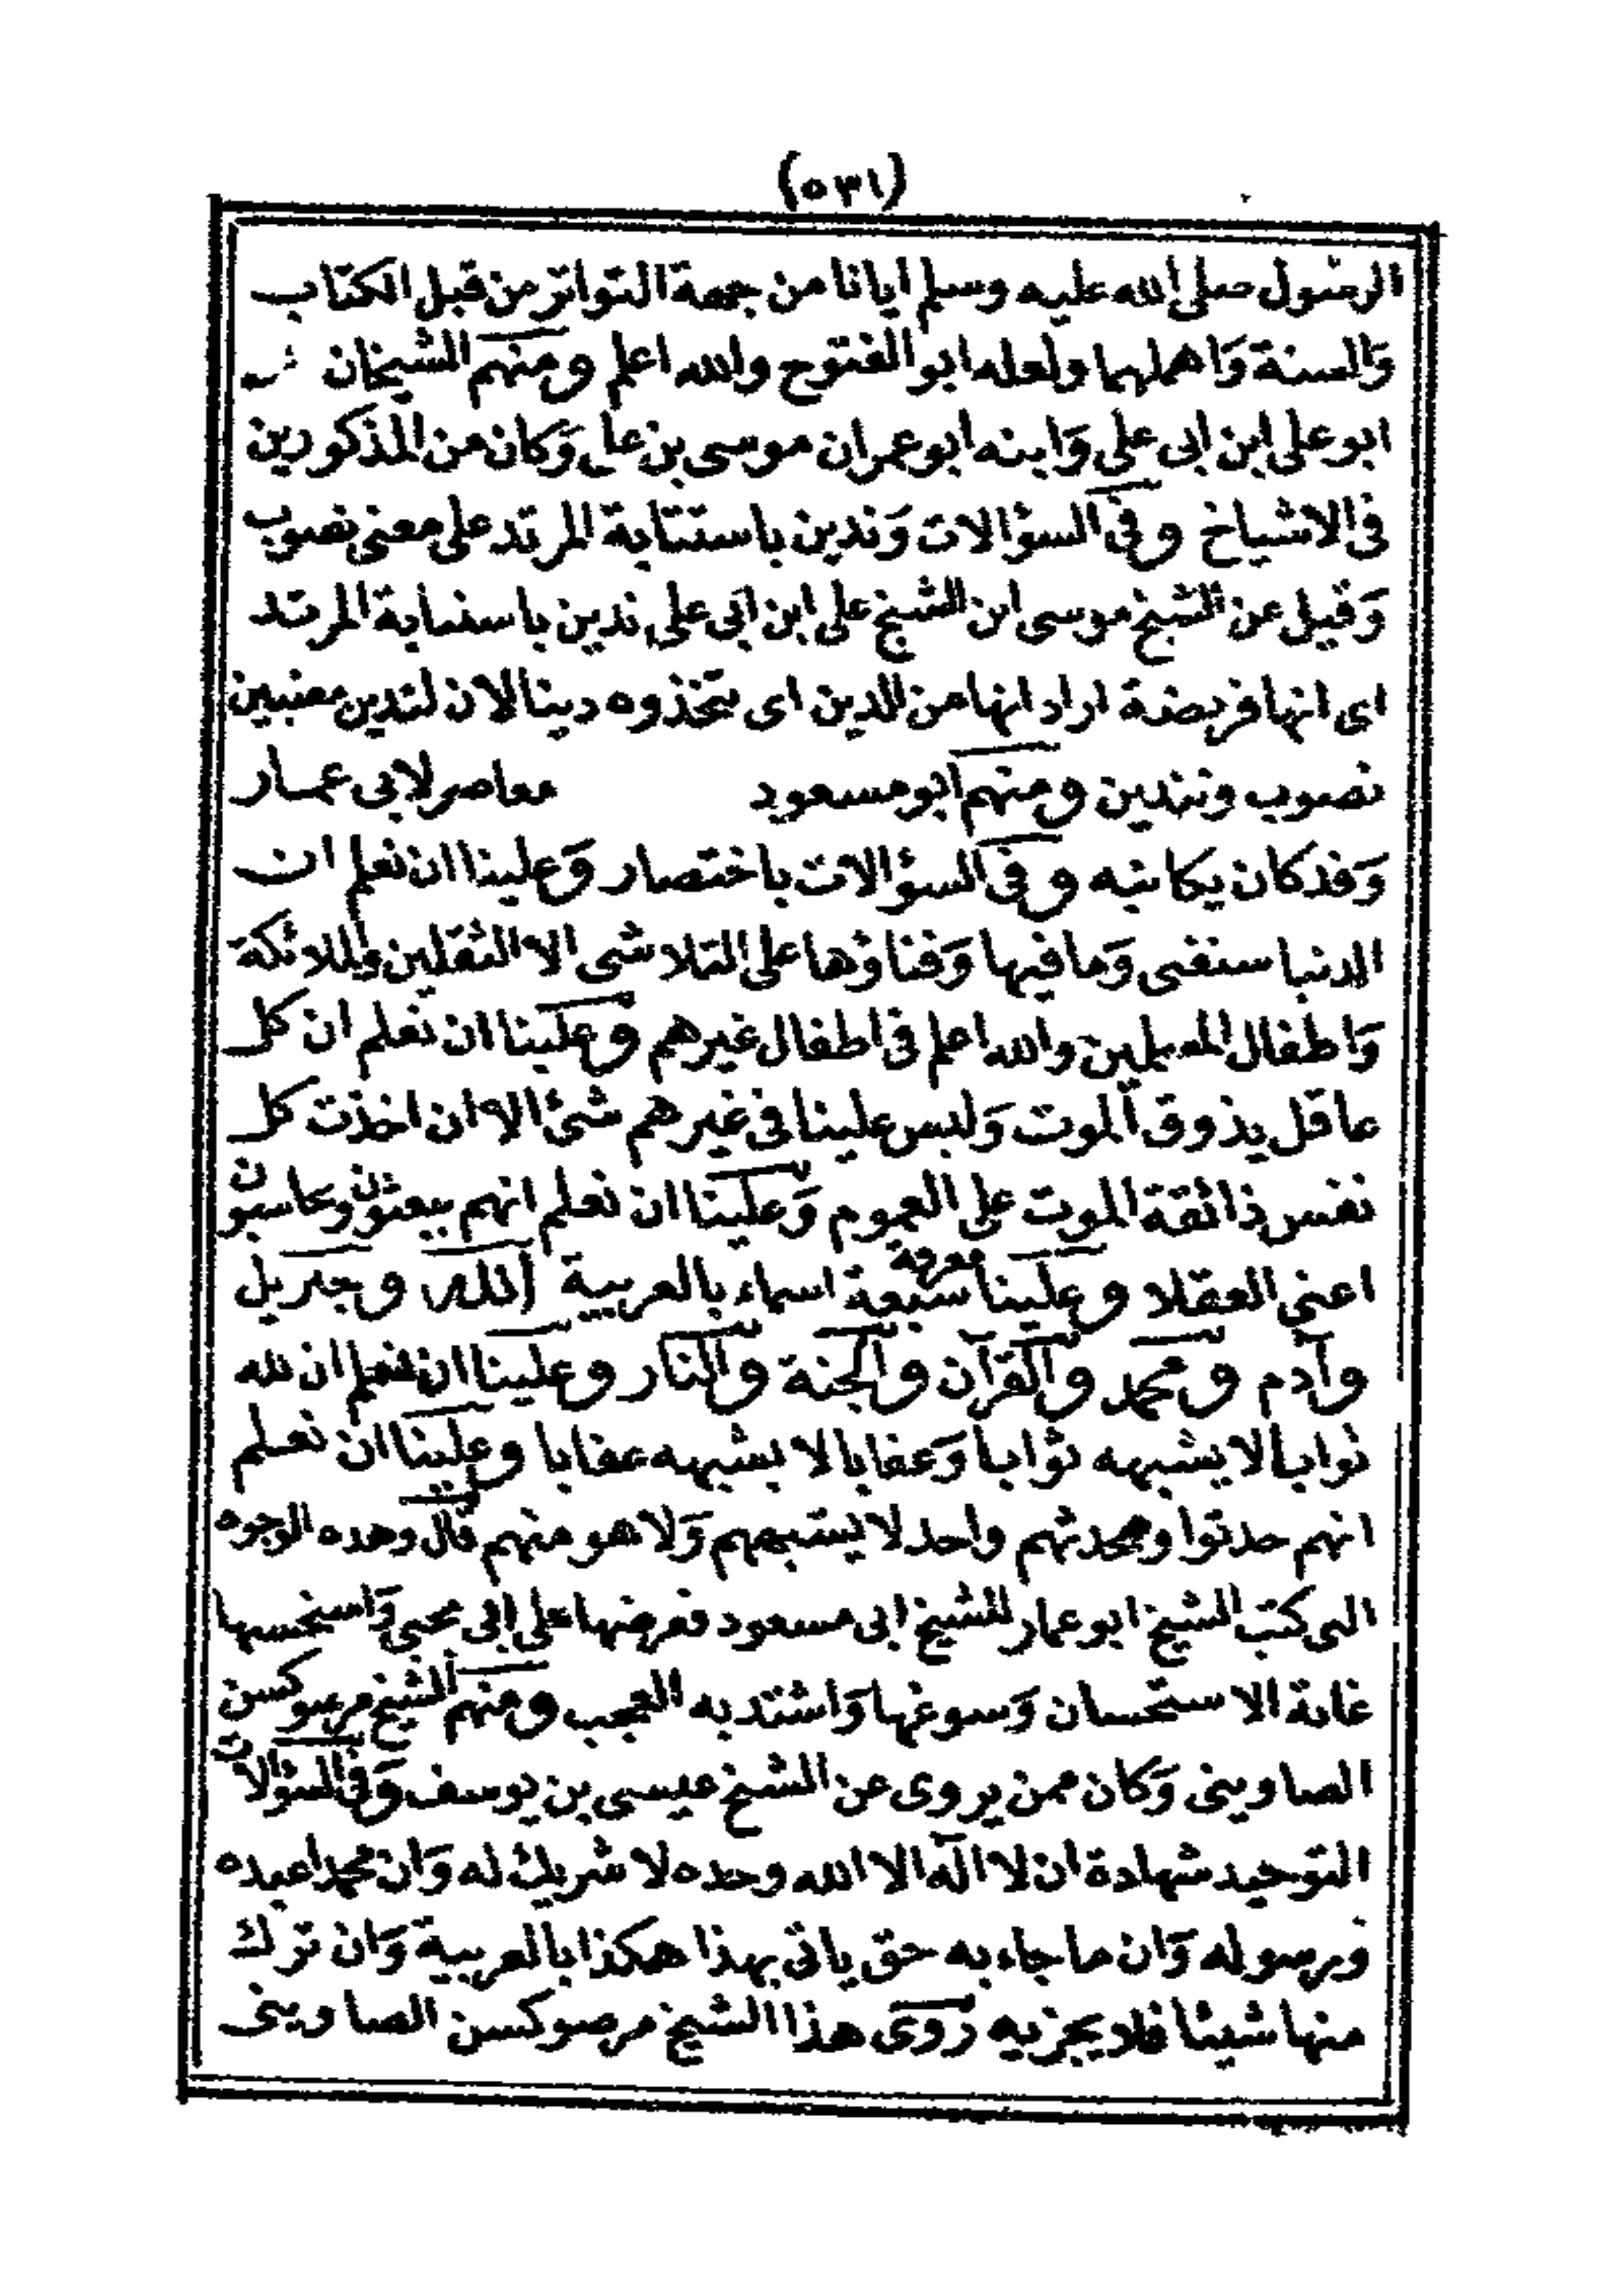 (٥٣١)
الرسول صلى الله عليه وسلم ايانا من جهة التواتر من قبل الكتاب
والسنة وَاهلهما ولعله ابو الفتوح والله اعلم ومنهم الشيخان
ابو على ابن ابى على وَابنه ابو عمران موسى بن على وَكان من المذكورين
فى الاشياخ وفى السؤالات وَندين باستتابة المرتد على معنى نصوب
وَقيل عن الشيخ موسى ابن الشيخ على ابن ابى على ندين باستتابة المرتد
اى انها فريضة اراد انها من الدين اى يتخذوه دينا لان لندين معنيين
نصوب ونتدين ومنهم ابو مسعود معاصر لابى عمار
وَقد كان يكاتبه وفى السؤالات باختصار وَعلينا ان نعلم ان
الدنيا ستفنى وَما فيها وَفناؤها على التلاشى الا الثقلين والملائكة
وَاطفال المسلمين والله اعلم فى اطفال غيرهم وعلينا ان نعلم ان كل
عاقل يذوق الموت وَليس علينا فى غيرهم شئ الا ان اخذت كل
نفس ذائقة الموت على العموم وَعلينا ان نعلم انهم يبعثون ويحاسبون
اعنى العقلا وعلينا معرفة سبعة اسماء بالعربية الله وجبريل
وآدم ومحمد والقرآن والجنة والنار وعلينا ان نعلم ان لله
ثوابا لا يشبهه ثوابا وَعقابا لا يشبهه عقابا وعلينا ان نعلم
انهم حدثوا ومحدثهم واحد لا يشبههم وَلا هو منهم قال وهذه الوجوه
التى كتب الشيخ ابو عمار للشيخ ابى مسعود فعرضها على ابى يحيى وَاستحسنها
غاية الاستحسان وَسوغها وَاشتد به العجب ومنهم الشيخ مرصوكسن
الصاوينى وَكان ممن يروى عن الشيخ عيسى بن يوسف وَفى السؤالات
التوحيد شهادة ان لا اله الا الله وحده لا شريك له وَان محمدا عبده
ورسوله وَان ما جاء به حق ياتى بهذا هكذا بالعربية وَان ترك
منها شيئا فلا يجزيه روى هذا الشيخ مرصوكسن الصاوينى